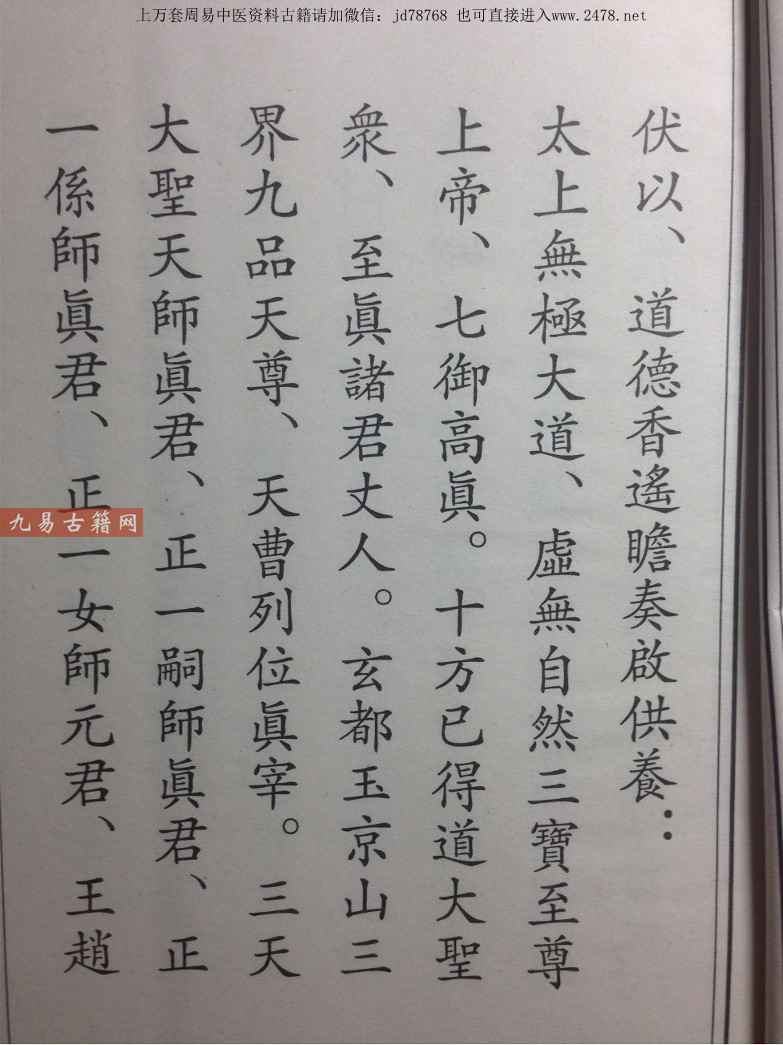 上万套周易中医资料古籍请加微信：jd78768 也可直接进入www.2478.net
伏以、道德香遙瞻奏啟供養：
太上無極大道、虛無自然三寶至尊
上帝、七御高眞。十方已得道大聖
衆、至眞諸君丈人。玄都玉京山三
界九品天尊、天曹列位眞宰。三天
大聖天師眞君、正一嗣師眞君、正
一係師眞君、正一女師元君、王趙
九易古籍网